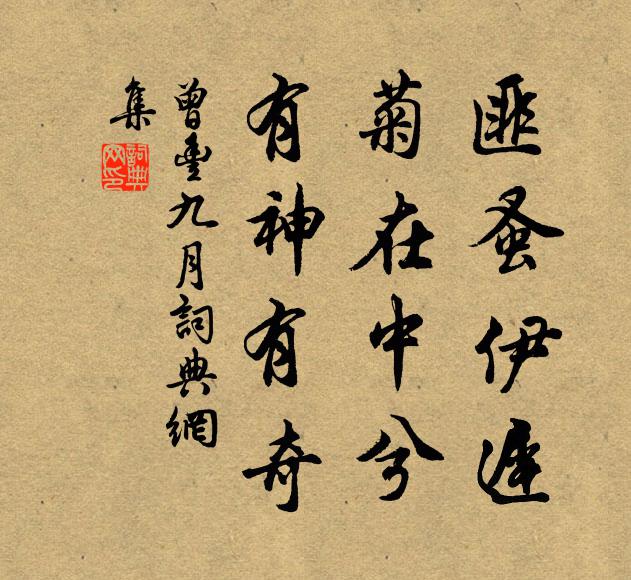 匪蚤伊遲
菊在中兮
有神有奇
曾豊九月詞典網
集
詞典
网印